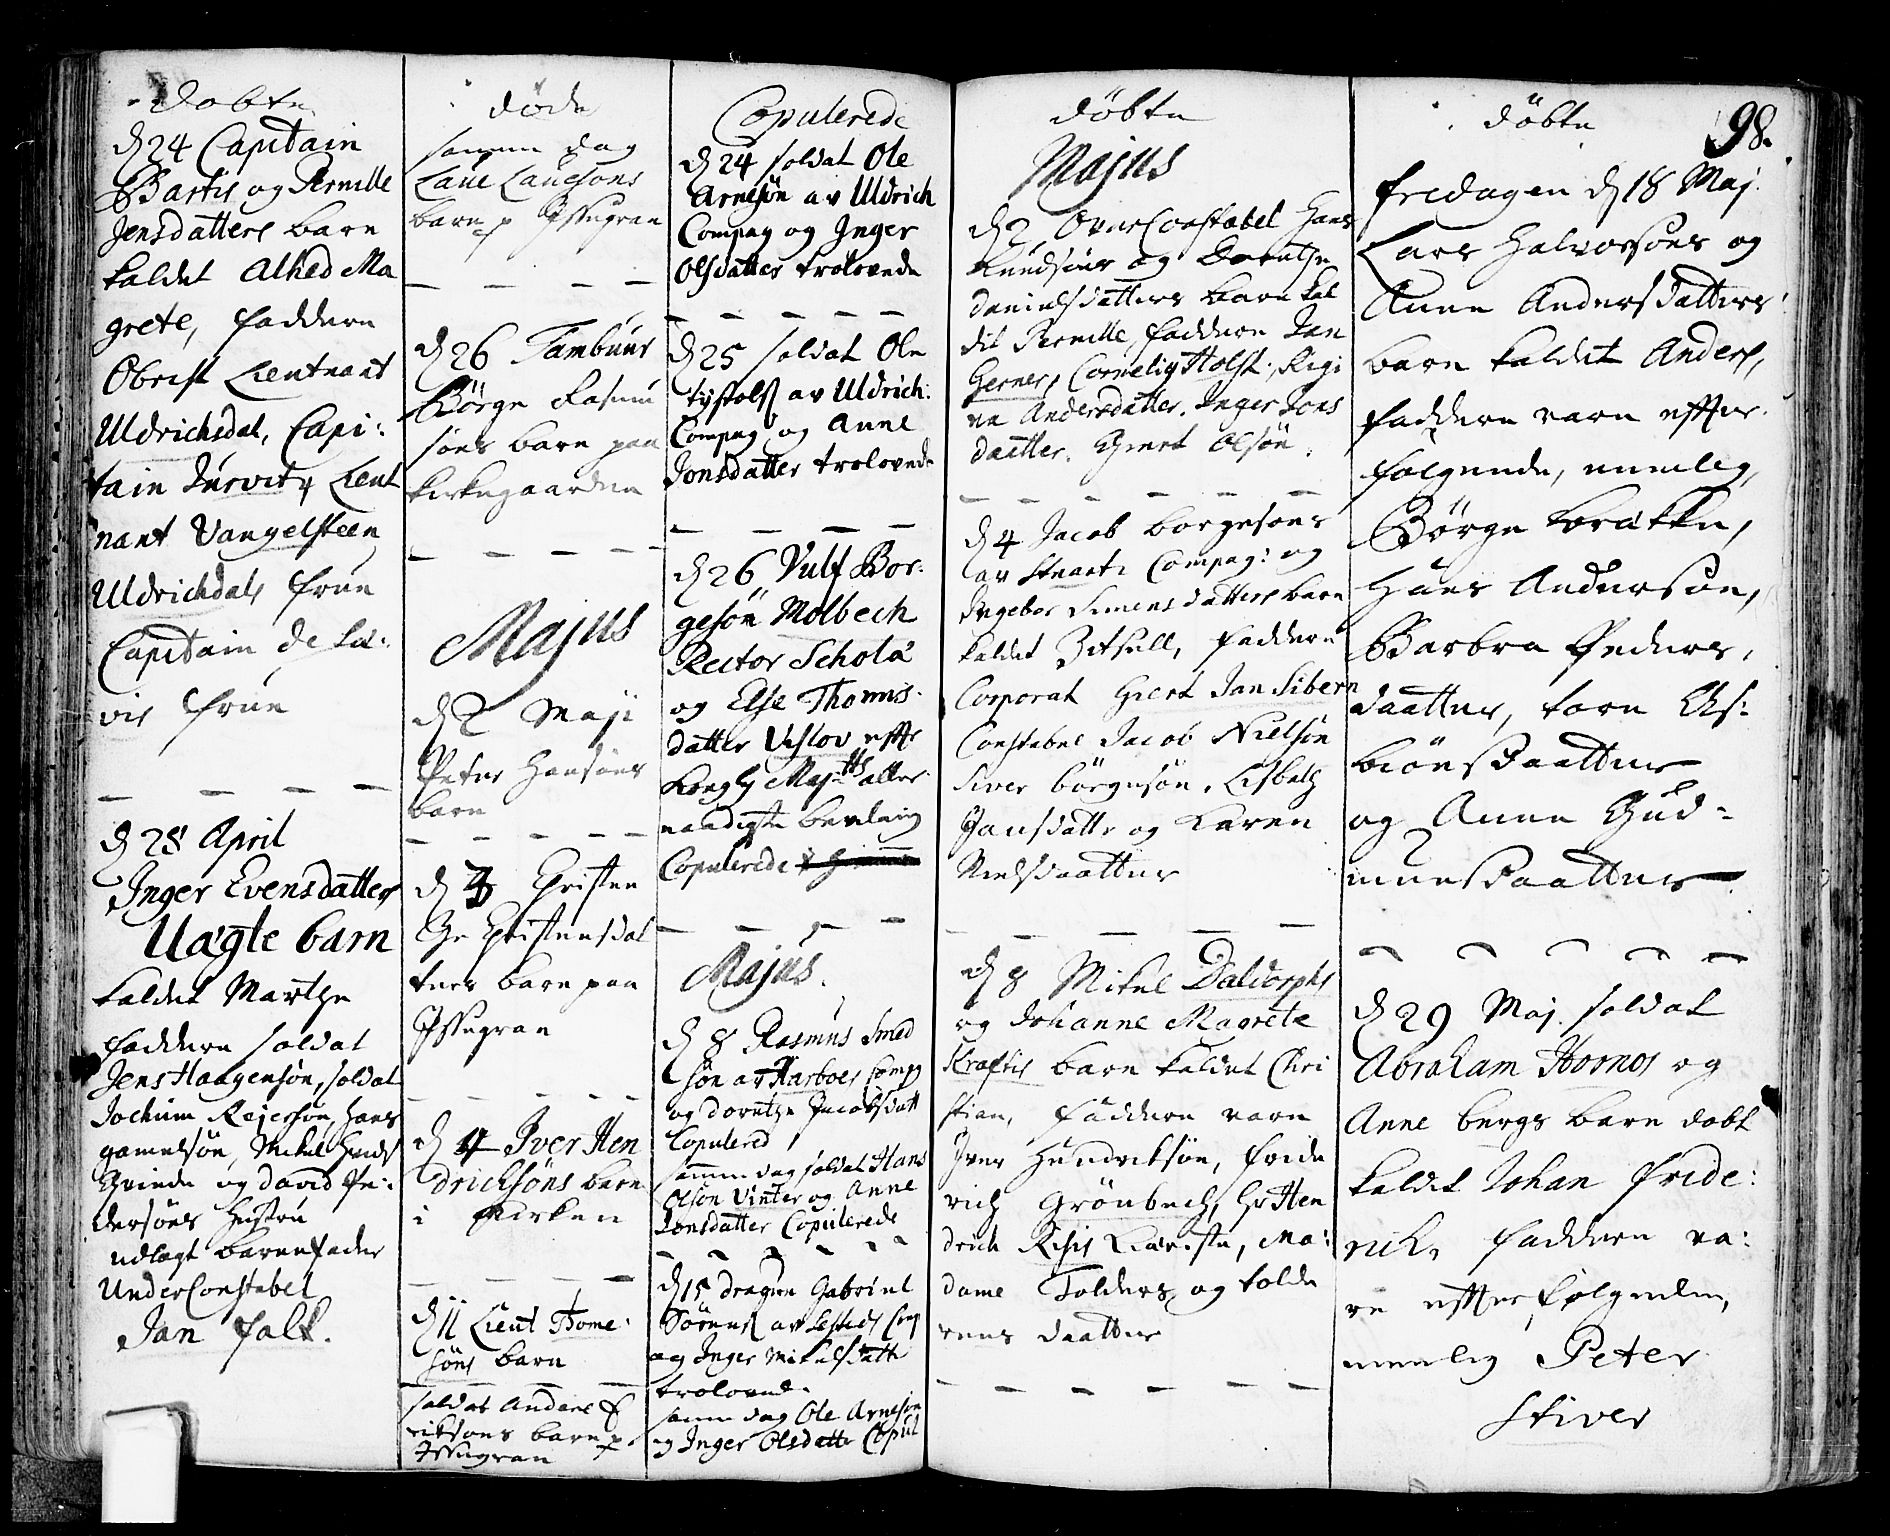 Døbte
D 24 Capitain
Bartis og Pernille
Jensdatters barn
kaldet Alhed Ma
grete, faddere
Obrist Lieutnant
Uldrichsdal, Capi:
tain Lieut
nant Vangelsteen
Uldrichdals frue
Capitain de La:
vis frue
D 28 April
Inger Evensdatters
Uægte barn
kaldet Marthe
faddere soldat
Jens Haagensøn, soldat
Jochum Rejersøn, Hans
gamelsøn, Mikel
Qvinde og David Pe:
dersøns Hustru
udlagt barnefader
UnderConstabel
Jan falk.
døde
samme dag
Laue Lauesøns
barn p Issegran
D 26 Tambuur
Børge Rasmu
søns barn paa
kirkegaarden
Majus
D 2 Maji
Peter Hansøns
barn
D 3 Christen
Christensdat
ters barn paa
Issegran
D 4 Iver Hen
dricksøns barn
i kirken
D 11 Lieut Tome:
søns barn
soldat Anders E
riksøns barn p
Issegran
Copulerede
D 24 soldat Ole
Arnesøn av Uldrich
Compag og Inger
Olsdatter trolovede
D 25 soldat Ole
av Uldrich:
Compag og Anne
Jonsdatter trolovede
D 26 Vulf Bor:
gesøn Molbech
Rector Schola
og Else Thomis:
datter Vislov effter
Kongl Majtts aller
naadigste bevilning
Copulerede
Majus.
D 8 Rasmus Smed
søn av Harboes Comp
og Dorethe Jacobsdatt
Copulered
samme dag soldat Hans
Olsøn Vinter og Anne
Jonsdatter Copulerede
D 15 dragun Gabriel
Sørens av Comp
og Inger Mikelsdatt
trolovede
samme dag Ole Arnesøn
og Inger Olsdatter Copul
døbte
Majus
D 2 OverConstabel Hans
Knudsøns og Dorethe
Danielsdatters barn kal
dit Pernille, faddere Jan
Gerner, Cornelig Holst, Regi
na Andersdatter, Inger Jons
daatter, Giert Olsøn.
D 4 Jacob borgesøns
av Stuart Compag: og
Ingebor Simensdatters barn
kaldet Zitsell, faddere
Corporal Giert Jan Sibern
Constabel Jacob Nielsøn
Siver børgesøn, Lisbeth
Jansdatter og Karen
Nielsdaatter
D 8 Mikel Daldorphs
og Johanne Magrete
Krafts barn kaldet Chri
stian, faddere vare
Iver Hendriksøn, fride
rich Grönbech, Hr Hen
drich Ma:
dame Tolders og tolde
rens daatter
98.
Döbte
fredagen D 18 Maj.
Lars Halvorsøns og
Anne Andersdatters
barn kaldet Anders,
faddere varn effter
følgende, nemlig,
Börge brække,
Hans Andersøn,
Barbra Peders,
daatter, torn As:
biönsdaatter
og Anne Gud=
mundsdaatter
D 29 Maj. soldat
Abraham Hornos og
Anne bergs barn døbt
kaldet Johan fride:
rich, faddere va:
re effterfølgende,
nemlig Peter
Stiver